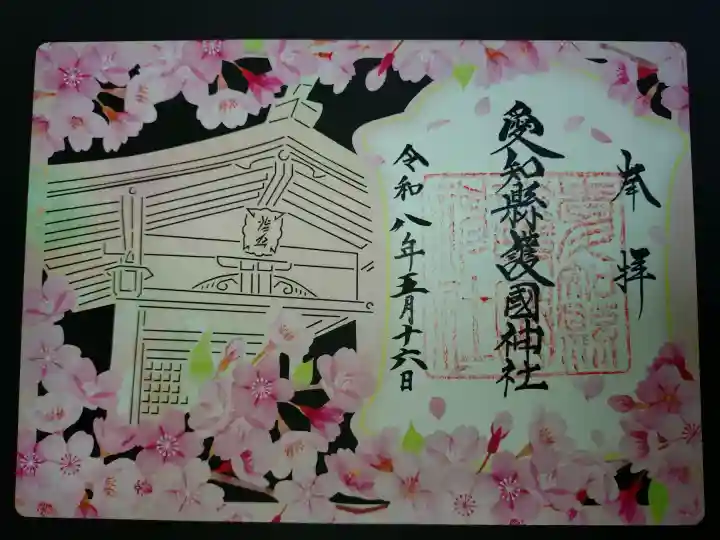 奉拝
愛知縣護國神社
令和八年五月十六日